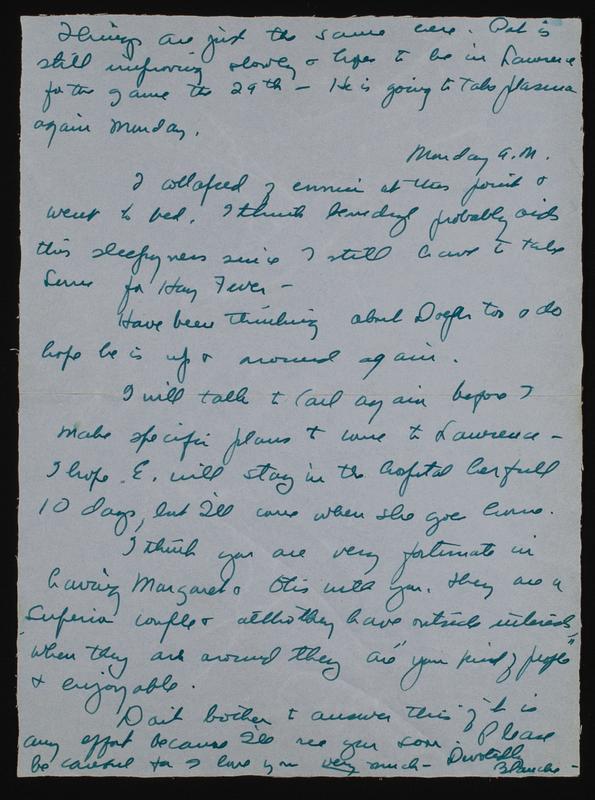 Things are just the same here. Pat is
still improving slowly & hopes to be in Lawrence
for the game the 29th – He is going to take plasma
again Monday.
Monday A.M.
I collapsed of ennui at this point &
went to bed. I think benedryl probably aids
this sleepyness since I still have to take
some for Hay Fever –
Have been thinking about too & do
hope he is up & around again.
I will talk to Carl again before I
make specific plans to come to Lawrence –
I hope E. will stay in the hospital her full
10 days, but I'll come when she goes home.
I think you are very fortunate in
having Margaret & Otis with you. They are a
superior couple & altho they have outside interests,
when they are around they are "your kind of people"
& enjoyable.
Don't bother to answer this if it is
any effort because I'll see you soon. Please
be careful for I love you very much – Devotedly
Blanche –